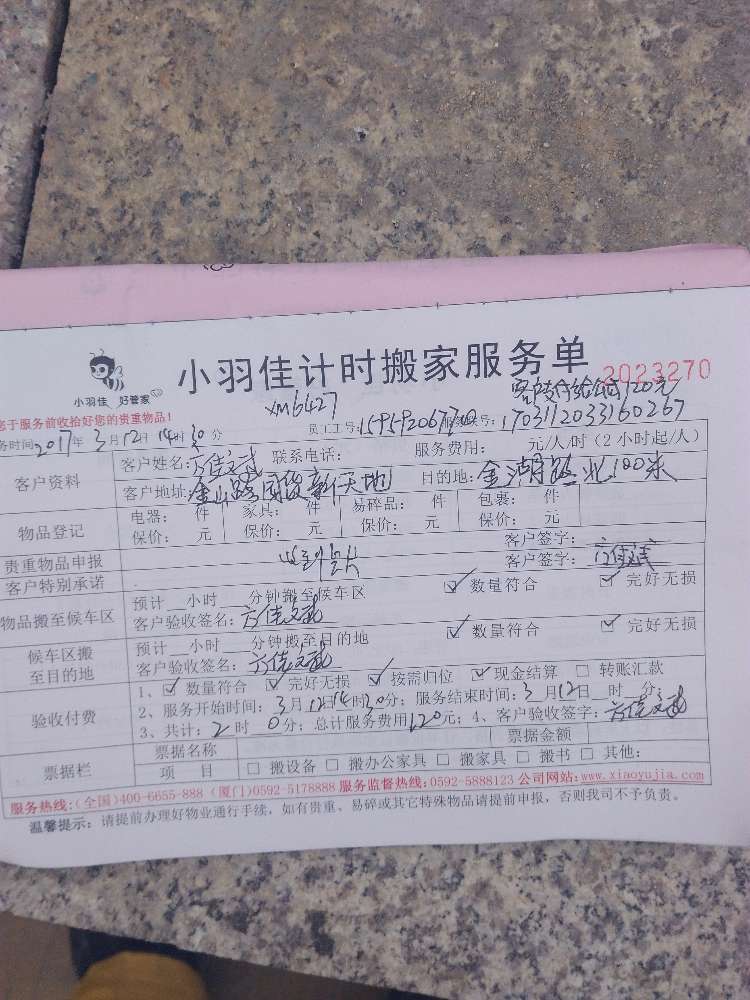 小羽佳 好管家
小羽佳计时搬家服务单
2023270
您于服务前收拾好您的贵重物品!
XM6427
客户支付给公司120元
务时间:2017年3月12日14时30分
员工工号:15959206770
服务单号:170311203316 0267
客户资料
客户姓名:方佳文武 联系电话: 服务费用: 元/人/时(2小时起/人)
客户地址:金山路国俊新天地 目的地:金湖路北100米
物品登记
电器: 件 家具: 件 易碎品: 件 包裹: 件
保价: 元 保价: 元 保价: 元 保价: 元
客户签字:
贵重物品申报
客户签字:
客户特别承诺
物品搬至候车区
预计__小时__分钟搬至候车区
数量符合 完好无损
客户验收签名:
候车区搬至目的地
预计__小时__分钟搬至目的地
数量符合 完好无损
客户验收签名:
验收付费
1、数量符合 完好无损 按需归位 现金结算 转账汇款
2、服务开始时间:3月12日14时30分;服务结束时间:3月12日__时__分;
3、共计:2时0分;总计服务费用120元;4、客户验收签字:
票据栏
票据名称 票据金额
项 目 搬设备 搬办公家具 搬家具 搬书 其他:
服务热线:(全国)400-6655-888 (厦门)0592-5178888 服务监督热线:0592-5888123 公司网站:www.xiaoyujia.com
温馨提示:请提前办理好物业通行手续,如有贵重、易碎或其它特殊物品请提前申报,否则我司不予负责。